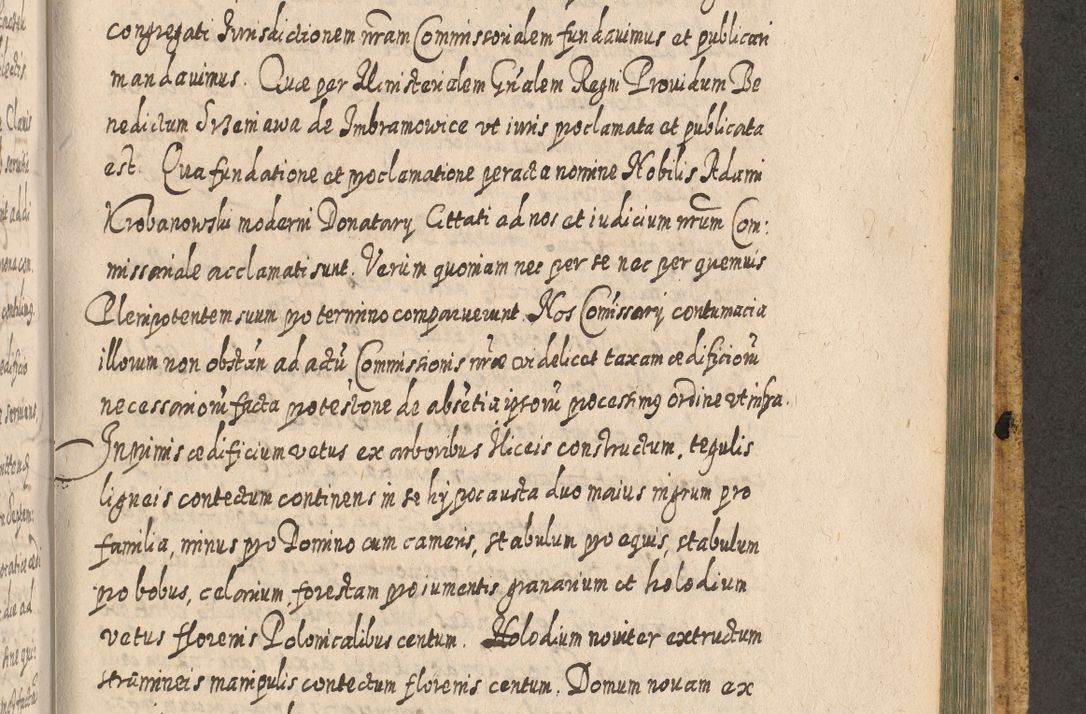 congregati Jurisdictionem nr̃am Commissorialem fundavimus et publicari
mandavimus. Quæ per Ministerialem Gñalem Regni Providum Be
nedictum Srzeniawa de Imbramowice ut iuris proclamata et publicata
est. Qua fundatione et proclamatione peracta nomine Nobilis Adami
Krobanowski moderni Donatarij Cittati ad nos et iudicium nr̃um Com:
missoriale acclamati sunt. Verum quoniam nec per se nec per quemvis
Plenipotentem suum pro termino comparuerunt. Nos Comissarij contumacia
illorum non obstañ ad actũ Commissionis nr̃æ videlicet taxam ædificiorũ
necessariorũ facta protestone de absẽtia ipsorũ processimg ordine ut infra.
Inprimis ædificium vetus ex arboribus iliceis constructum, tegulis
ligneis contectum continens in se hypocausta duo maius nigrum pro
familia, minus pro Domino cum cameris, stabulum pro equis, stabulum
pro bobus, celarium, forestam pro iumentis granarium et holodium
vetus florenis Polonicalibus centum. Holodium noviter extructum
stramineis manipulis contectum florenis centum. Domum novam ex